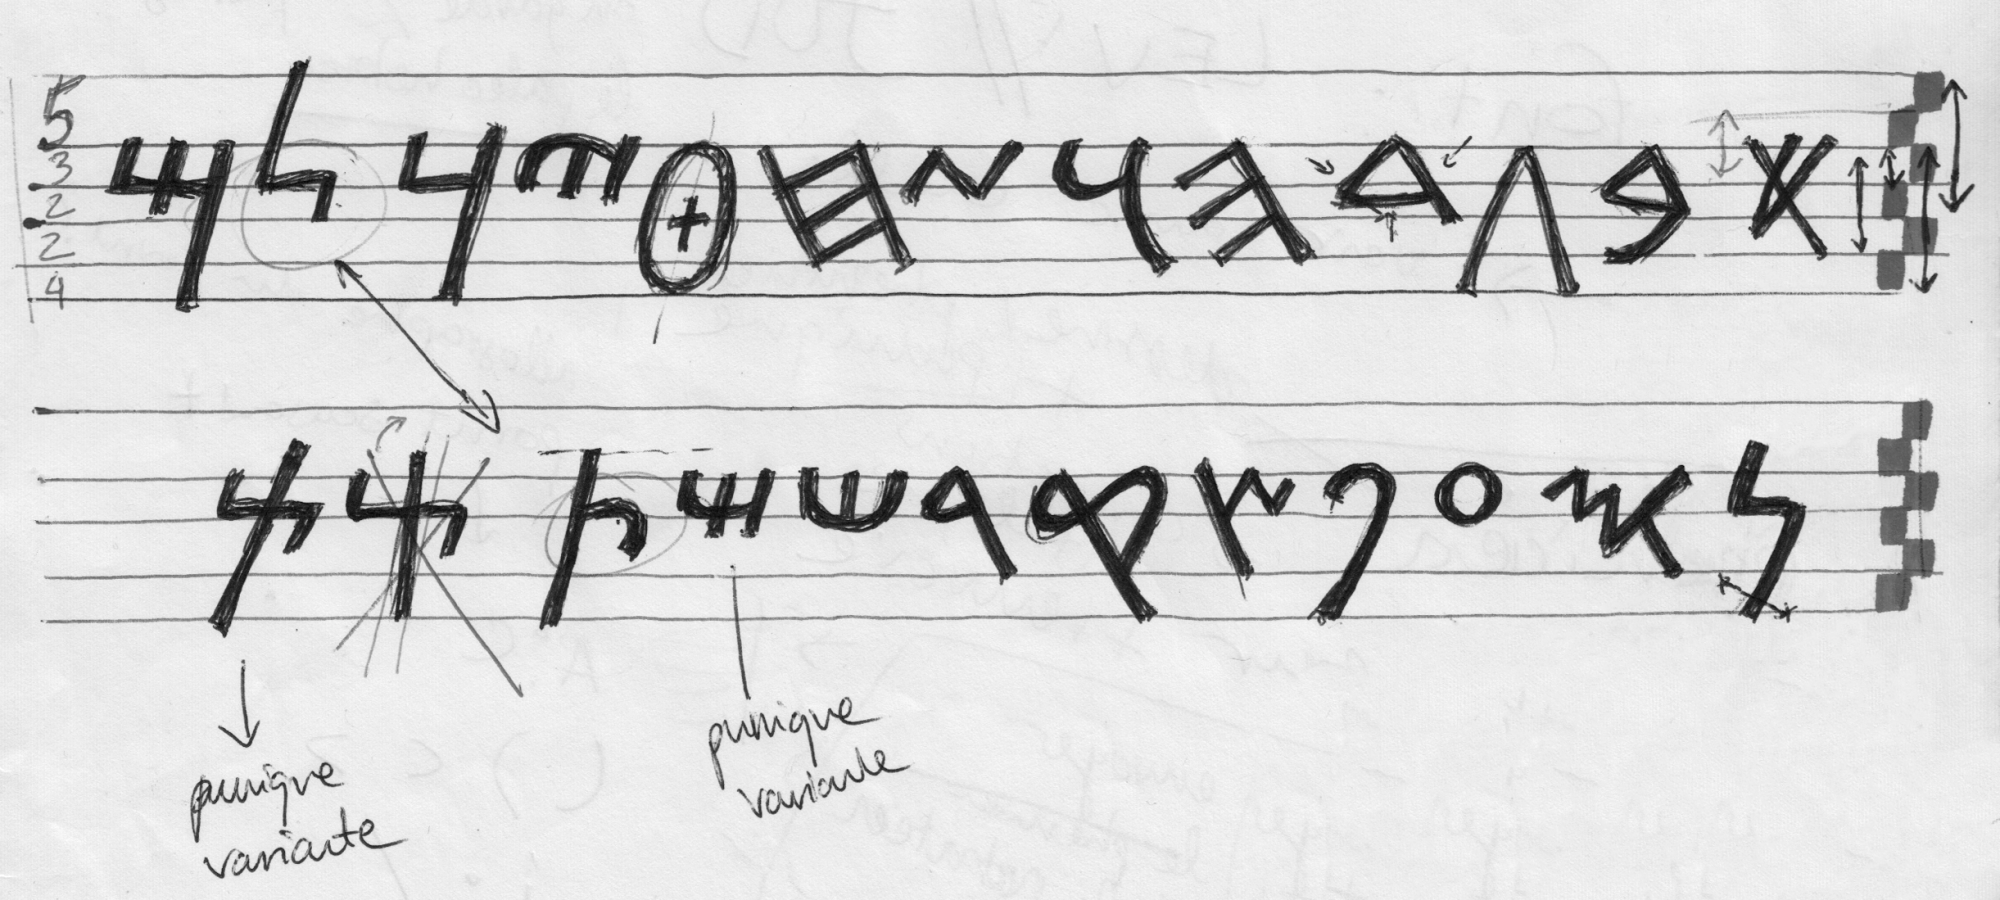 5
3
2
2
4
𐤀𐤁𐤂𐤃𐤄𐤅𐤆𐤇𐤈𐤉𐤊𐤋𐤌
𐤍𐤎𐤏𐤐𐤑𐤒𐤓𐤔𐤔𐤕𐤕𐤕
punique
variante
punique
variante